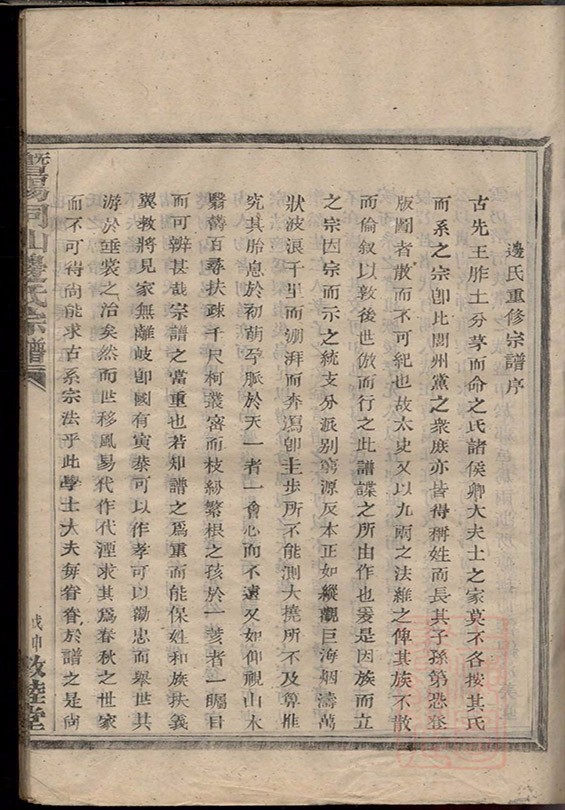 邊氏重修宗譜序
古先王胙土分茅而命之氏諸侯卿大夫士之家莫不各按其氏
而系之宗卽比閭州黨之衆庶亦皆得稱姓而長其子孫第恐登
版圖者散而不可紀也故太史又以九兩之法維之俾其族不散
而倫叙以敦後世倣而行之此譜諜之所由作也爰是因族而立
之宗因宗而示之統支分派别窮源反本正如縱觀巨海烟濤萬
狀波浪千里而澎湃而奔瀉卽主步所不能測大撓所不及算惟
究其胎息於初萌孕脈於天一者一會心而不遺又如仰視山木
翳薈百尋扶疎千尺柯叢密而枝紛繁根之孩於一荄者一矚目
而可辨甚哉宗譜之當重也若知譜之爲重而能保姓和族扶義
翼教將見家無離岐卽國有寅恭可以作孝可以勸忠而舉世其
游於垂裳之治矣然而世移風易代作代湮求其爲春秋之世家
而不可得尚能求古系宗法乎此學士大夫每眷眷於譜之是尚
暨陽同山邊氏宗譜
戊申 敦睦堂